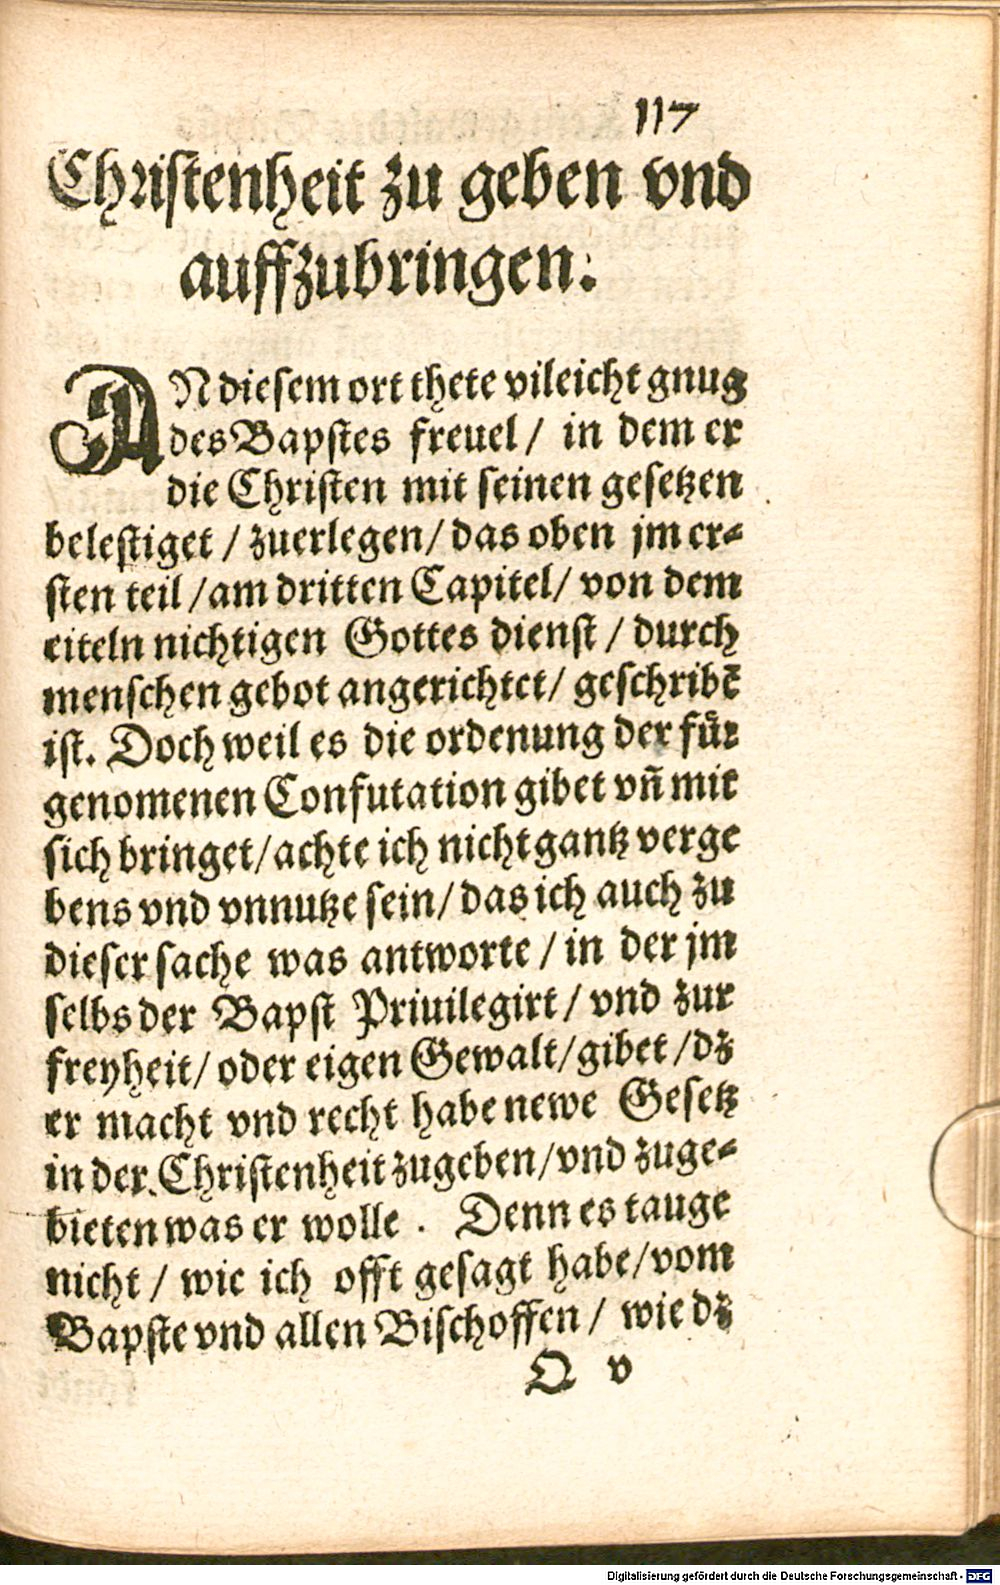 117
Christenheit zu geben vnd
auffzubringen.
AN diesem ort thete vileicht gnug
des Bapstes freuel / in dem er
die Christen mit seinen gesetzen
belestiget / zuerlegen / das oben jm er-
sten teil / am dritten Capitel / von dem
eiteln nichtigen Gottes dienst / durch
menschen gebot angerichtet / geschribē
ist. Doch weil es die ordenung der für
genomenen Confutation gibet vñ mit
sich bringet / achte ich nicht gantz verge
bens vnd vnnutze sein / das ich auch zu
dieser sache was antworte / in der jm
selbs der Bapst Priuilegirt / vnd zur
freyheit / oder eigen Gewalt / gibet / dz
er macht vnd recht habe newe Gesetz
in der Christenheit zugeben / vnd zuge-
bieten was er wolle . Denn es tauge
nicht / wie ich offt gesagt habe / vom
Bapste vnd allen Bischoffen / wie dz
Q v
Digitalisierung gefördert durch die Deutsche Forschungsgemeinschaft - DFG